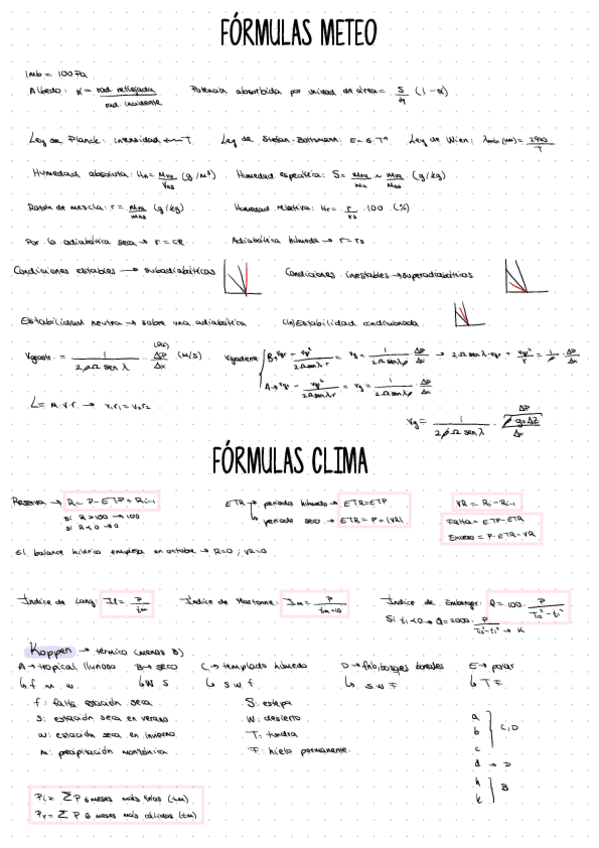 FÓRMULAS METEO
1mb = 100 Pa
Albedo: α = rad. reflejada / rad. incidente    Potencia absorbida por unidad de área = S/4 (1-α)
Ley de Planck: intensidad ~ T    Ley de Stefan-Boltzmann: E = σ·T⁴    Ley de Wien: λmáx (nm) = / T
Humedad absoluta: Ha = Mva / Vas (g/m³)    Humedad específica: S = ~ (g/kg)
Razón de mezcla: r = Mva / Mas (g/kg)    Humedad relativa: Hr = r / rs · 100 (%)
Por la adiabática seca → r = CR    Adiabática húmeda → r = rs
Condiciones estables → subadiabáticas    Condiciones inestables → superadiabáticas
Estabilidad neutra → sobre una adiabática    (In)Estabilidad condicionada
Vgeost. = 1 / 2ρΩ sen λ · ΔP (Pa) / Δx (m/s)    Vgradiente
B → Vgr + Vgr² / 2Ω sen λ·r = Vg = 1 / 2Ω sen λρ · ΔP / Δx → 2Ω sen λ·Vgr + Vgr² / r = 1/ρ · ΔP / Δx
A → Vgr - Vgr² / 2Ω sen λ·r = Vg = 1 / 2Ω sen λρ · ΔP / Δx
L = m·v·r → V₁r₁ = V₂r₂
Vg = 1 / 2ρΩ sen λ · ΔP / Δx
FÓRMULAS CLIMA
Reserva → Rᵢ = P - ETP + Rᵢ₋₁    ETR → periodo húmedo → ETR = ETP    VR = Rᵢ - Rᵢ₋₁
si R > 100 → 100
si R < 0 → 0
periodo seco → ETR = P + |VR|    Falta = ETP - ETR
Exceso = P - ETR - VR
El balance hídrico empieza en octubre → R=0; VR=0
Índice de Lang: Il = P / tm    Índice de Martonne: Im = P / tm+10    Índice de Emberger: Q = 100 · P / T₁₂² - t₁²
Si t₁<0 → Q = 2000 · P / T₁₂² - t₁² → K
Köppen → térmico (menos B)
A → tropical lluvioso    B → seco    C → templado húmedo    D → frío, bosques boreales    E → polar
↳ f m w    ↳ W S    ↳ s w f    ↳ s w f    ↳ T F
f: falta estación seca    S: estepa
s: estación seca en verano    W: desierto
w: estación seca en invierno    T: tundra
m: precipitación monzónica    F: hielo permanente
a
b } C, D
c
d → D
h
k } B
Pi = ΣP 6 meses más fríos (tm)
Pv = ΣP 6 meses más cálidos (tm)